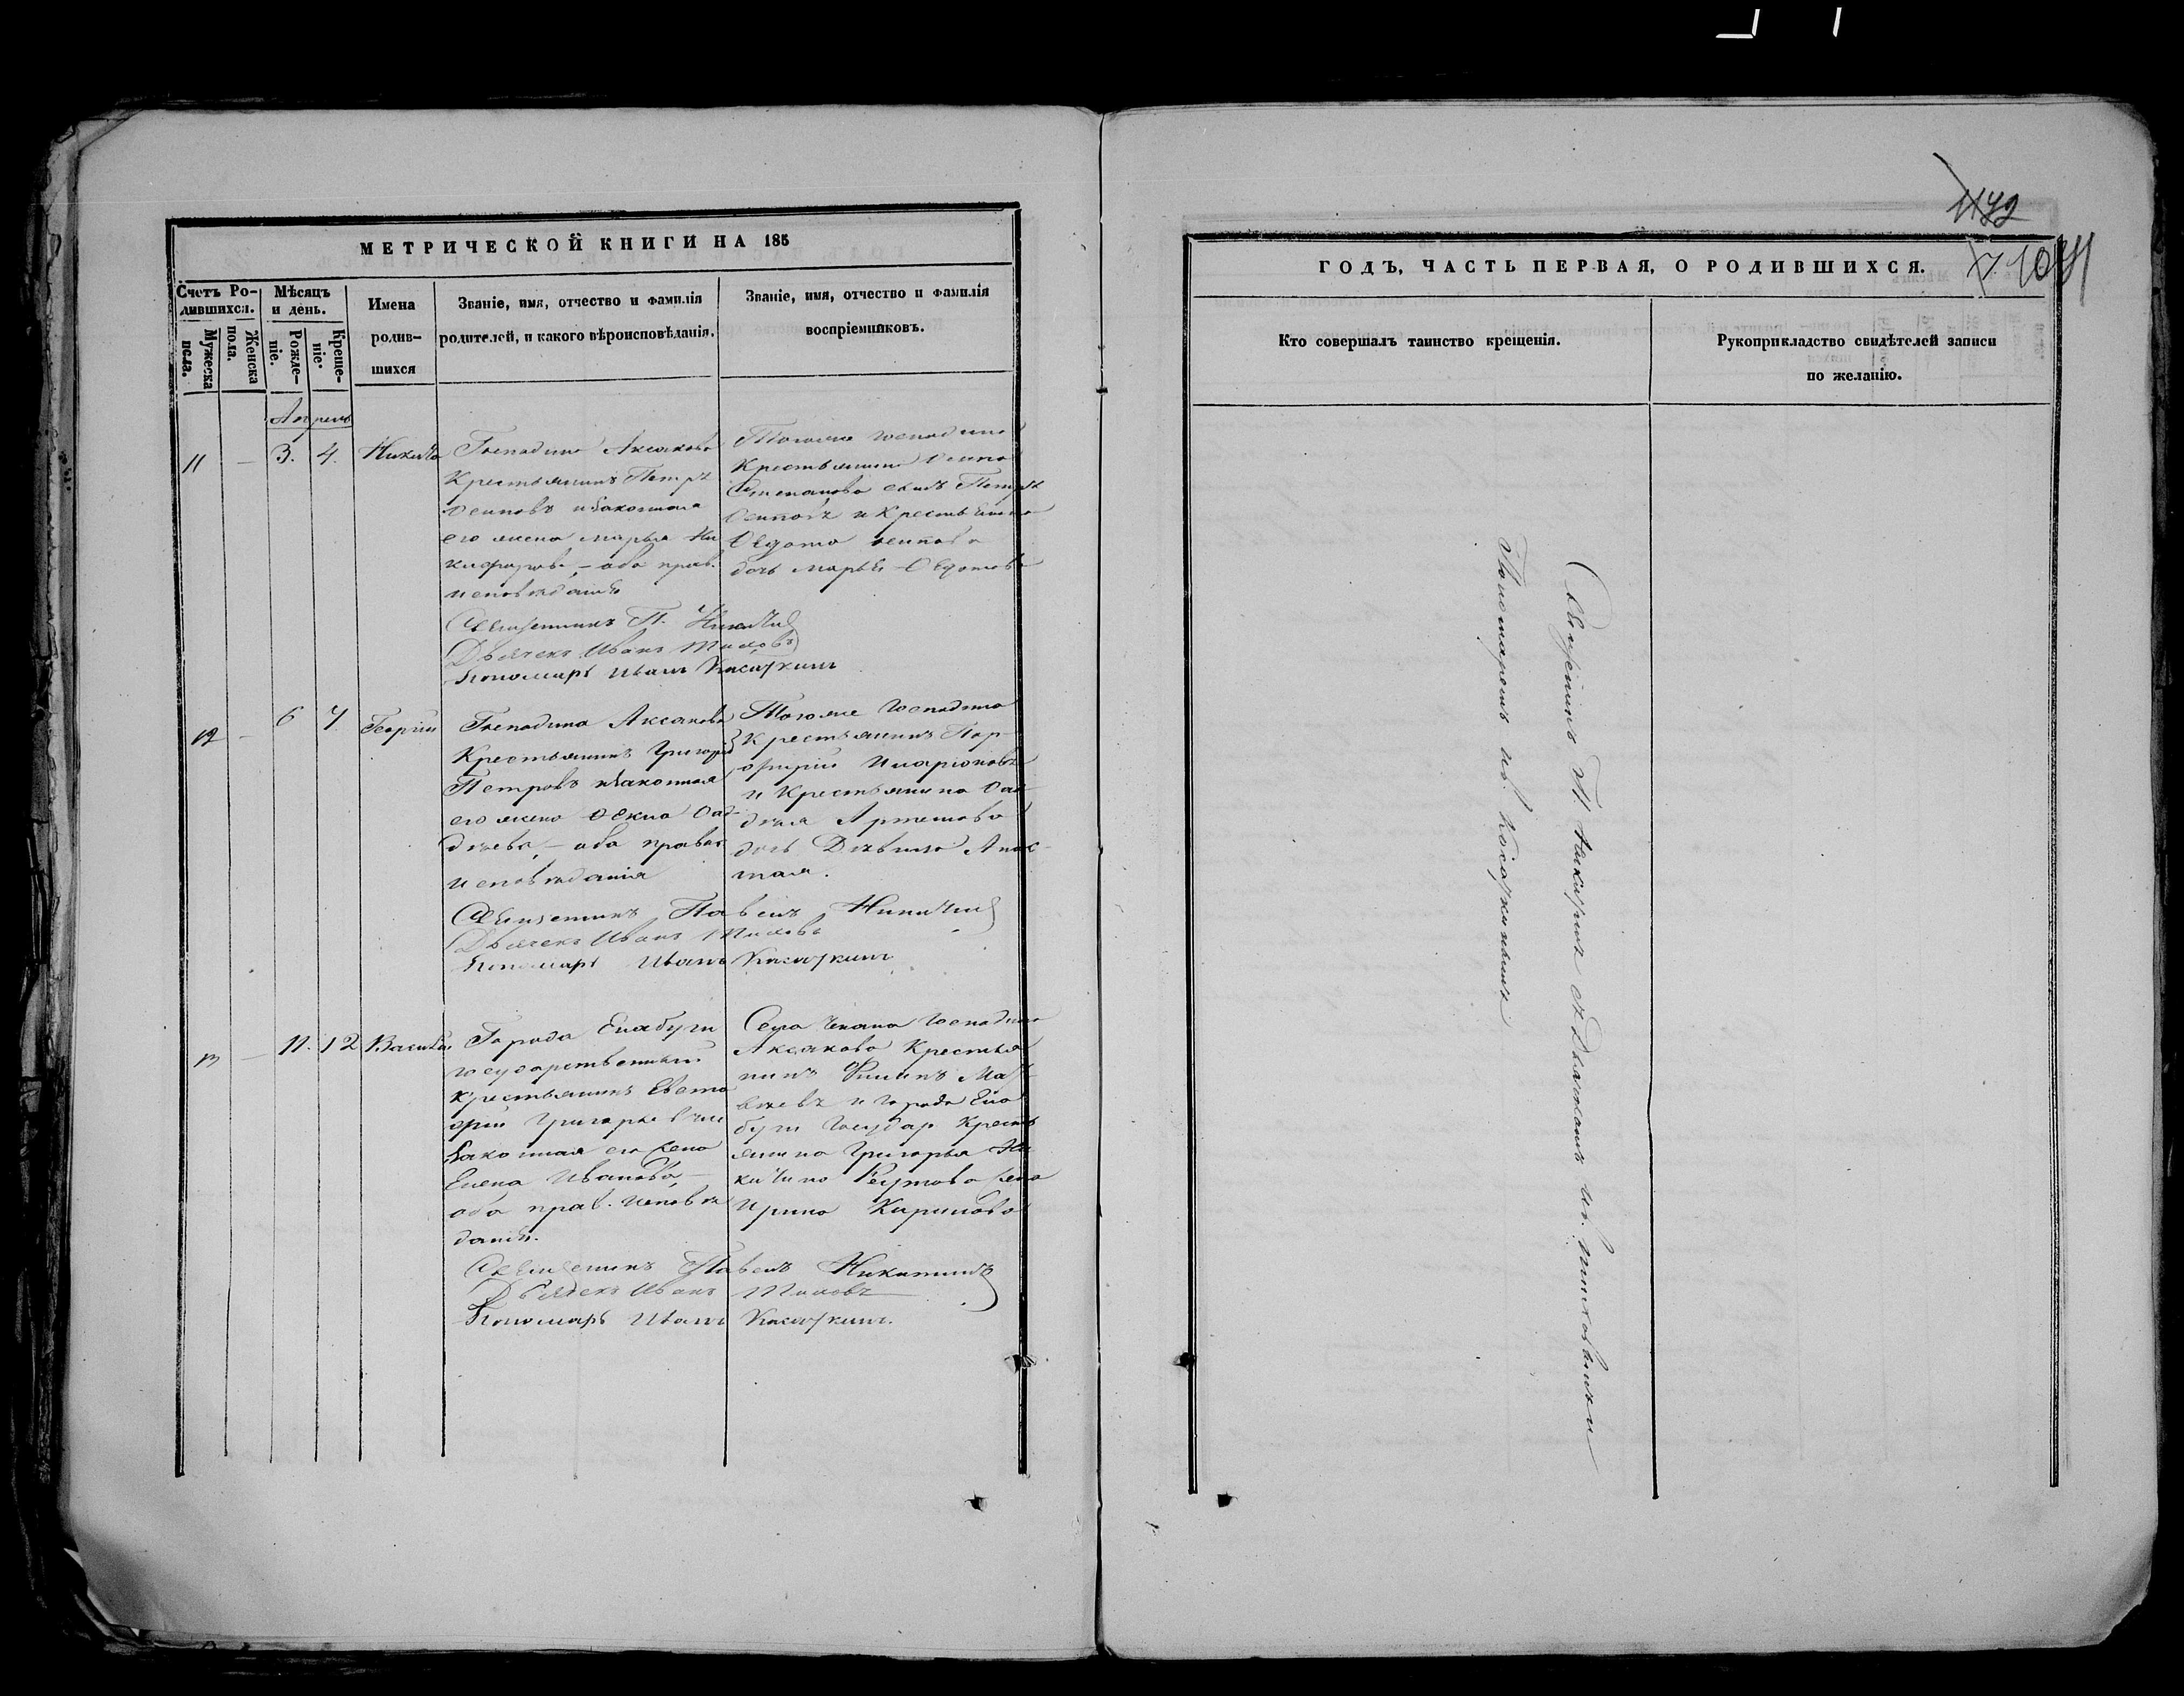 МЕТРИЧЕСКОЙ КНИГИ НА 185
Счетъ Ро-
дившихся.
Мужеска
пола.
Женска
пола.
Мѣсяцъ
и день.
Рожде-
ніе.
Креще-
ніе.
Имена
родив-
шихся
Званіе, имя, отчество и фамилія
родителей, и какого вѣроисповѣданія.
Званіе, имя, отчество и фамилія
воспріемниковъ.
Апрель
11 — 3. 4. Никита
Господина Аксакова
Крестьянинъ Петръ
Осиповъ и законная
его жена Марья Ни
кифорова, — оба прав.
исповѣданія
Тогоже господина
Крестьянина Осипа
Степанова сынъ Петръ
Осиповъ и Крестьянина
Ѳедота
дочь Марья Ѳедотова
Священникъ П. Никитинъ
Дьячекъ Иванъ Тиховъ
Пономарь Иванъ Касаткинъ
12 — 6 7 Георгій
Господина Аксакова
Крестьянинъ Григорій
Петровъ и законная
его жена Ѳекла Ѳад
дѣева, — оба правос
исповѣданія
Тогоже Господина
Крестьянинъ Пор-
фирій Иларіоновъ
и Крестьянина Ѳад
дѣя Артемова
дочь Дѣвица Анас-
тасія.
Священникъ Павелъ Никитинъ
Дьячекъ Иванъ Тиховъ
Пономарь Иванъ Касаткинъ
13 — 11. 12 Василій
Города Елабуги
государственный
Крестьянинъ Евста
фій Григорьевъ и
Законная его жена
Елена Иванова, —
оба прав. исповѣ
данія.
Села Чекана Господина
Аксакова Крестья
нинъ Филипъ Мат
вѣевъ и города Ела
буги Государ Кресть
янина Григорья Ни
китина жена
Ирина Кирилова
Священникъ Павелъ Никитинъ
Дьячекъ Иванъ Тиховъ
Пономарь Иванъ Касаткинъ.
ГОДЪ, ЧАСТЬ ПЕРВАЯ, О РОДИВШИХСЯ.
Кто совершалъ таинство крещенія.
Рукоприкладство свидѣтелей записи
по желанію.
Священникъ П. Никитинъ съ Дьячкомъ Ив. Тиховымъ и
Пономаремъ Ив. Косаткинымъ